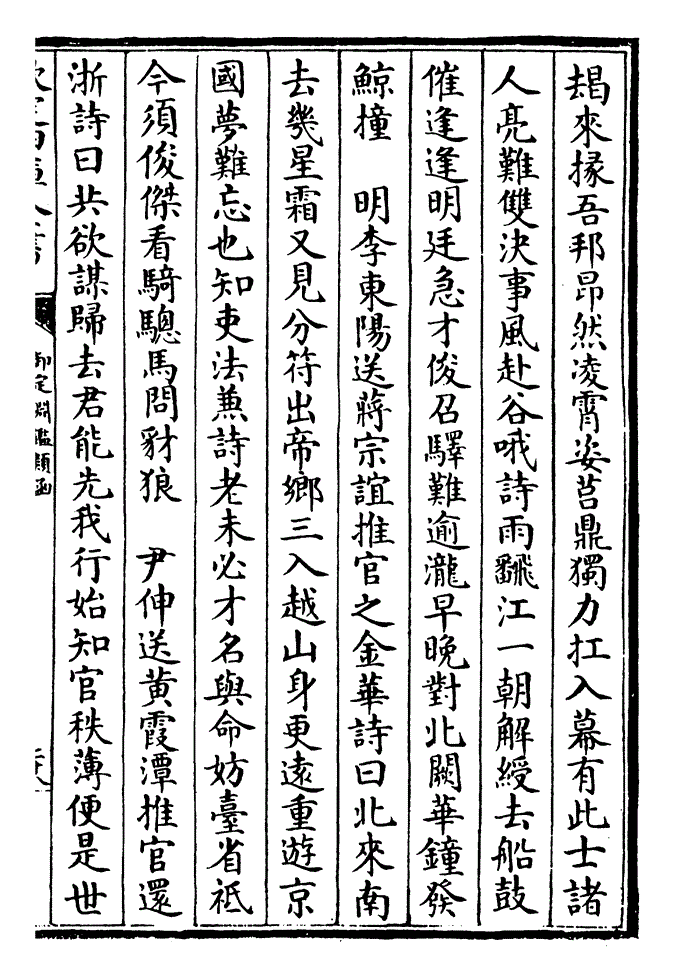 朅來掾吾邦昂然凌霄姿筥鼎獨力扛入幕有此士諸
人亮難雙決事風赴谷哦詩雨飜江一朝解綬去船鼓
催逢逢明廷急才俊召驛難逾瀧早晚對北闕華鐘發
鯨撞　明李東陽送蔣宗誼推官之金華詩曰北來南
去幾星霜又見分符出帝鄉三入越山身更遠重遊京
國夢難忘也知吏法兼詩老未必才名與命妨臺省祗
今須俊傑看騎驄馬問豺狼　尹伸送黄霞潭推官還
浙詩曰共欲謀歸去君能先我行始知官秩薄便是世
御定淵鑑類函